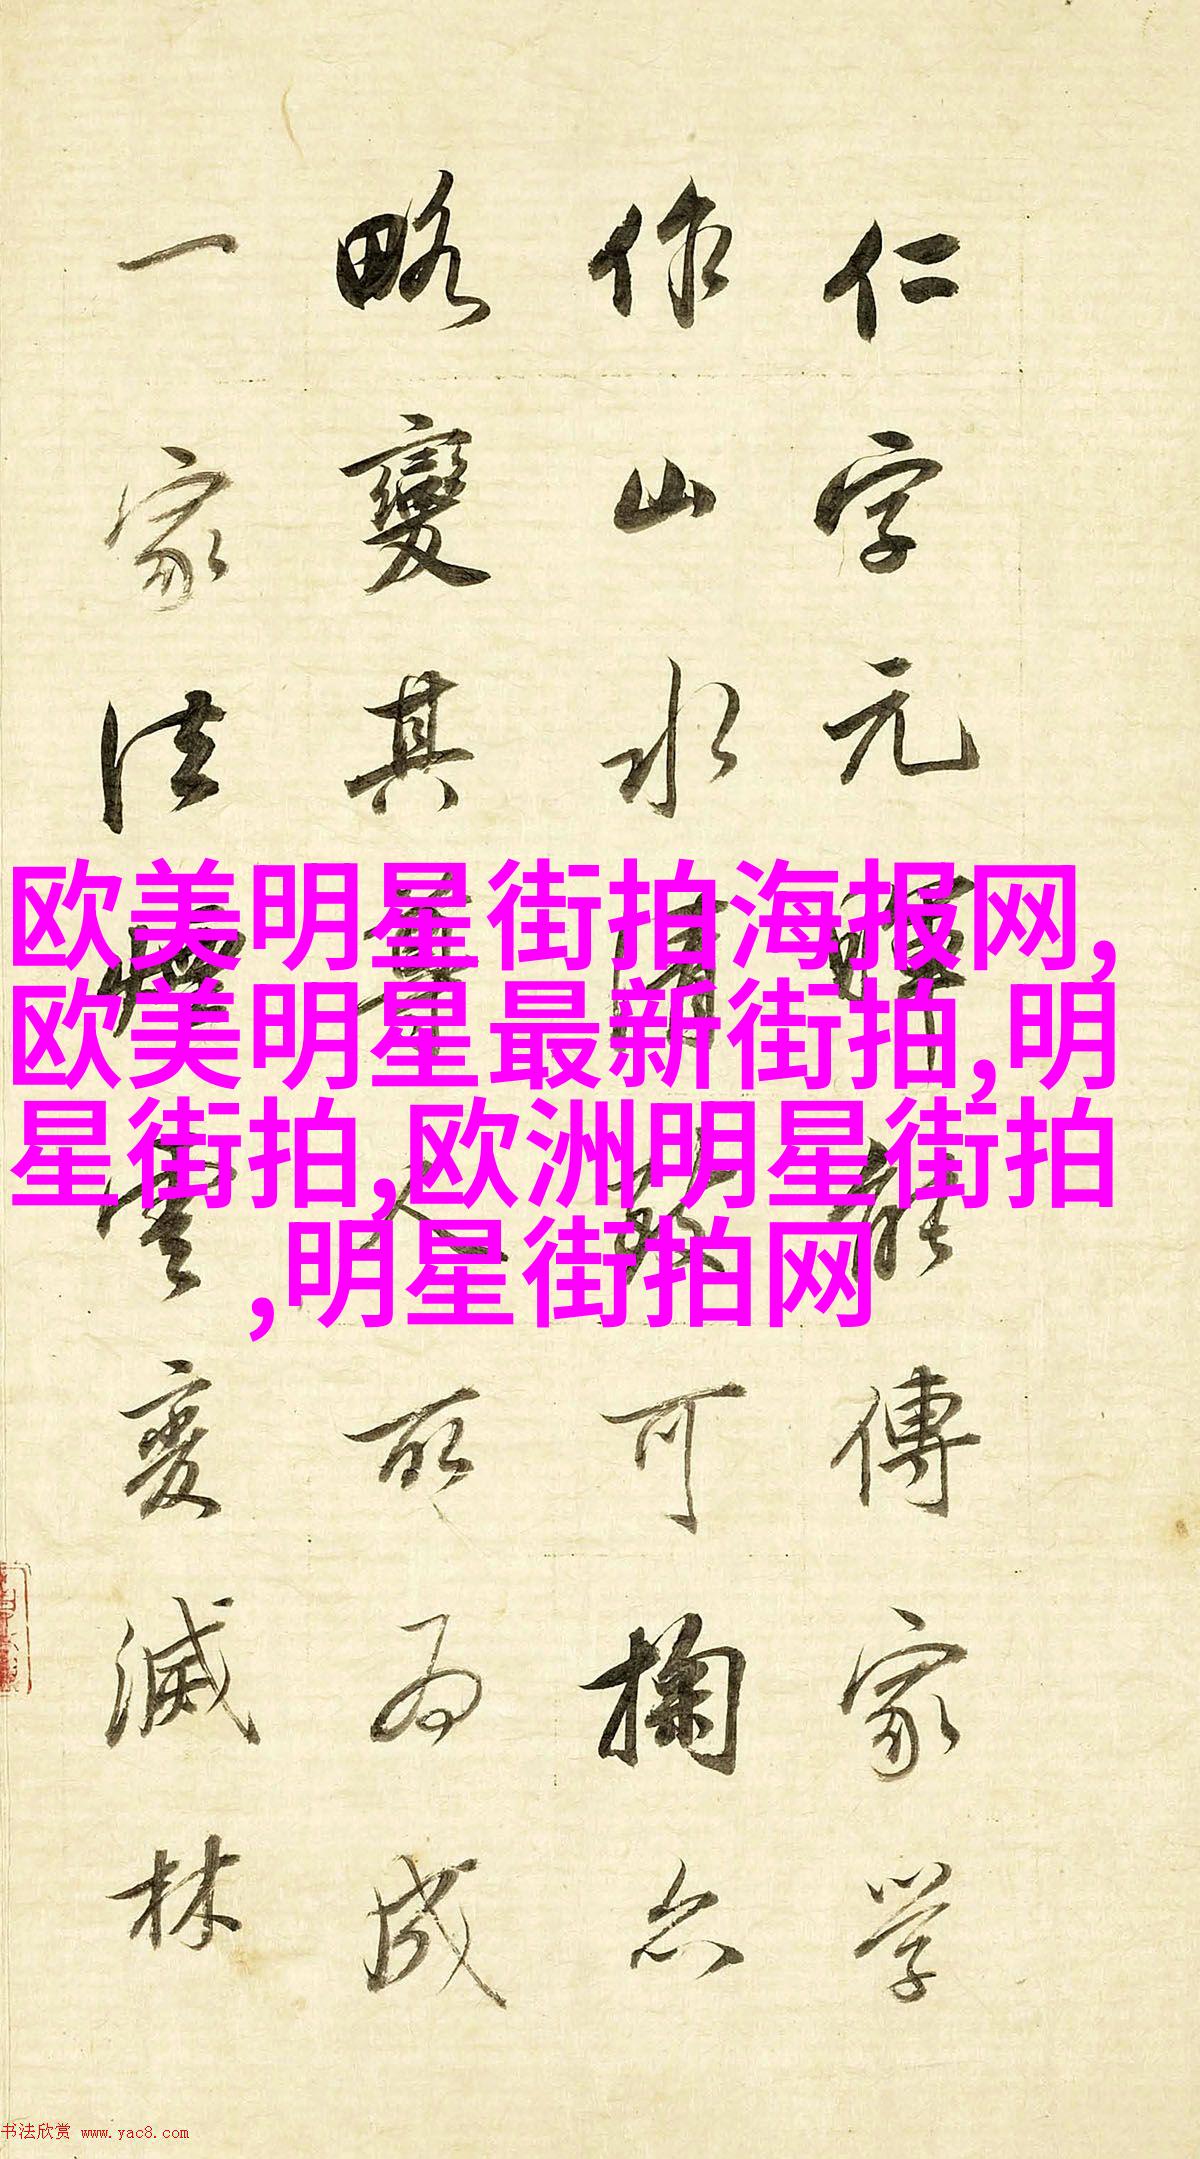 仁字元暉能傳家學
作山水清致可掬亦
略變其尊人所為成
一家法煙雲變滅林
欧美明星街拍海报网,
欧美明星最新街拍,明
星街拍,欧洲明星街拍
,明星街拍网
书法欣赏 www.yac8.com